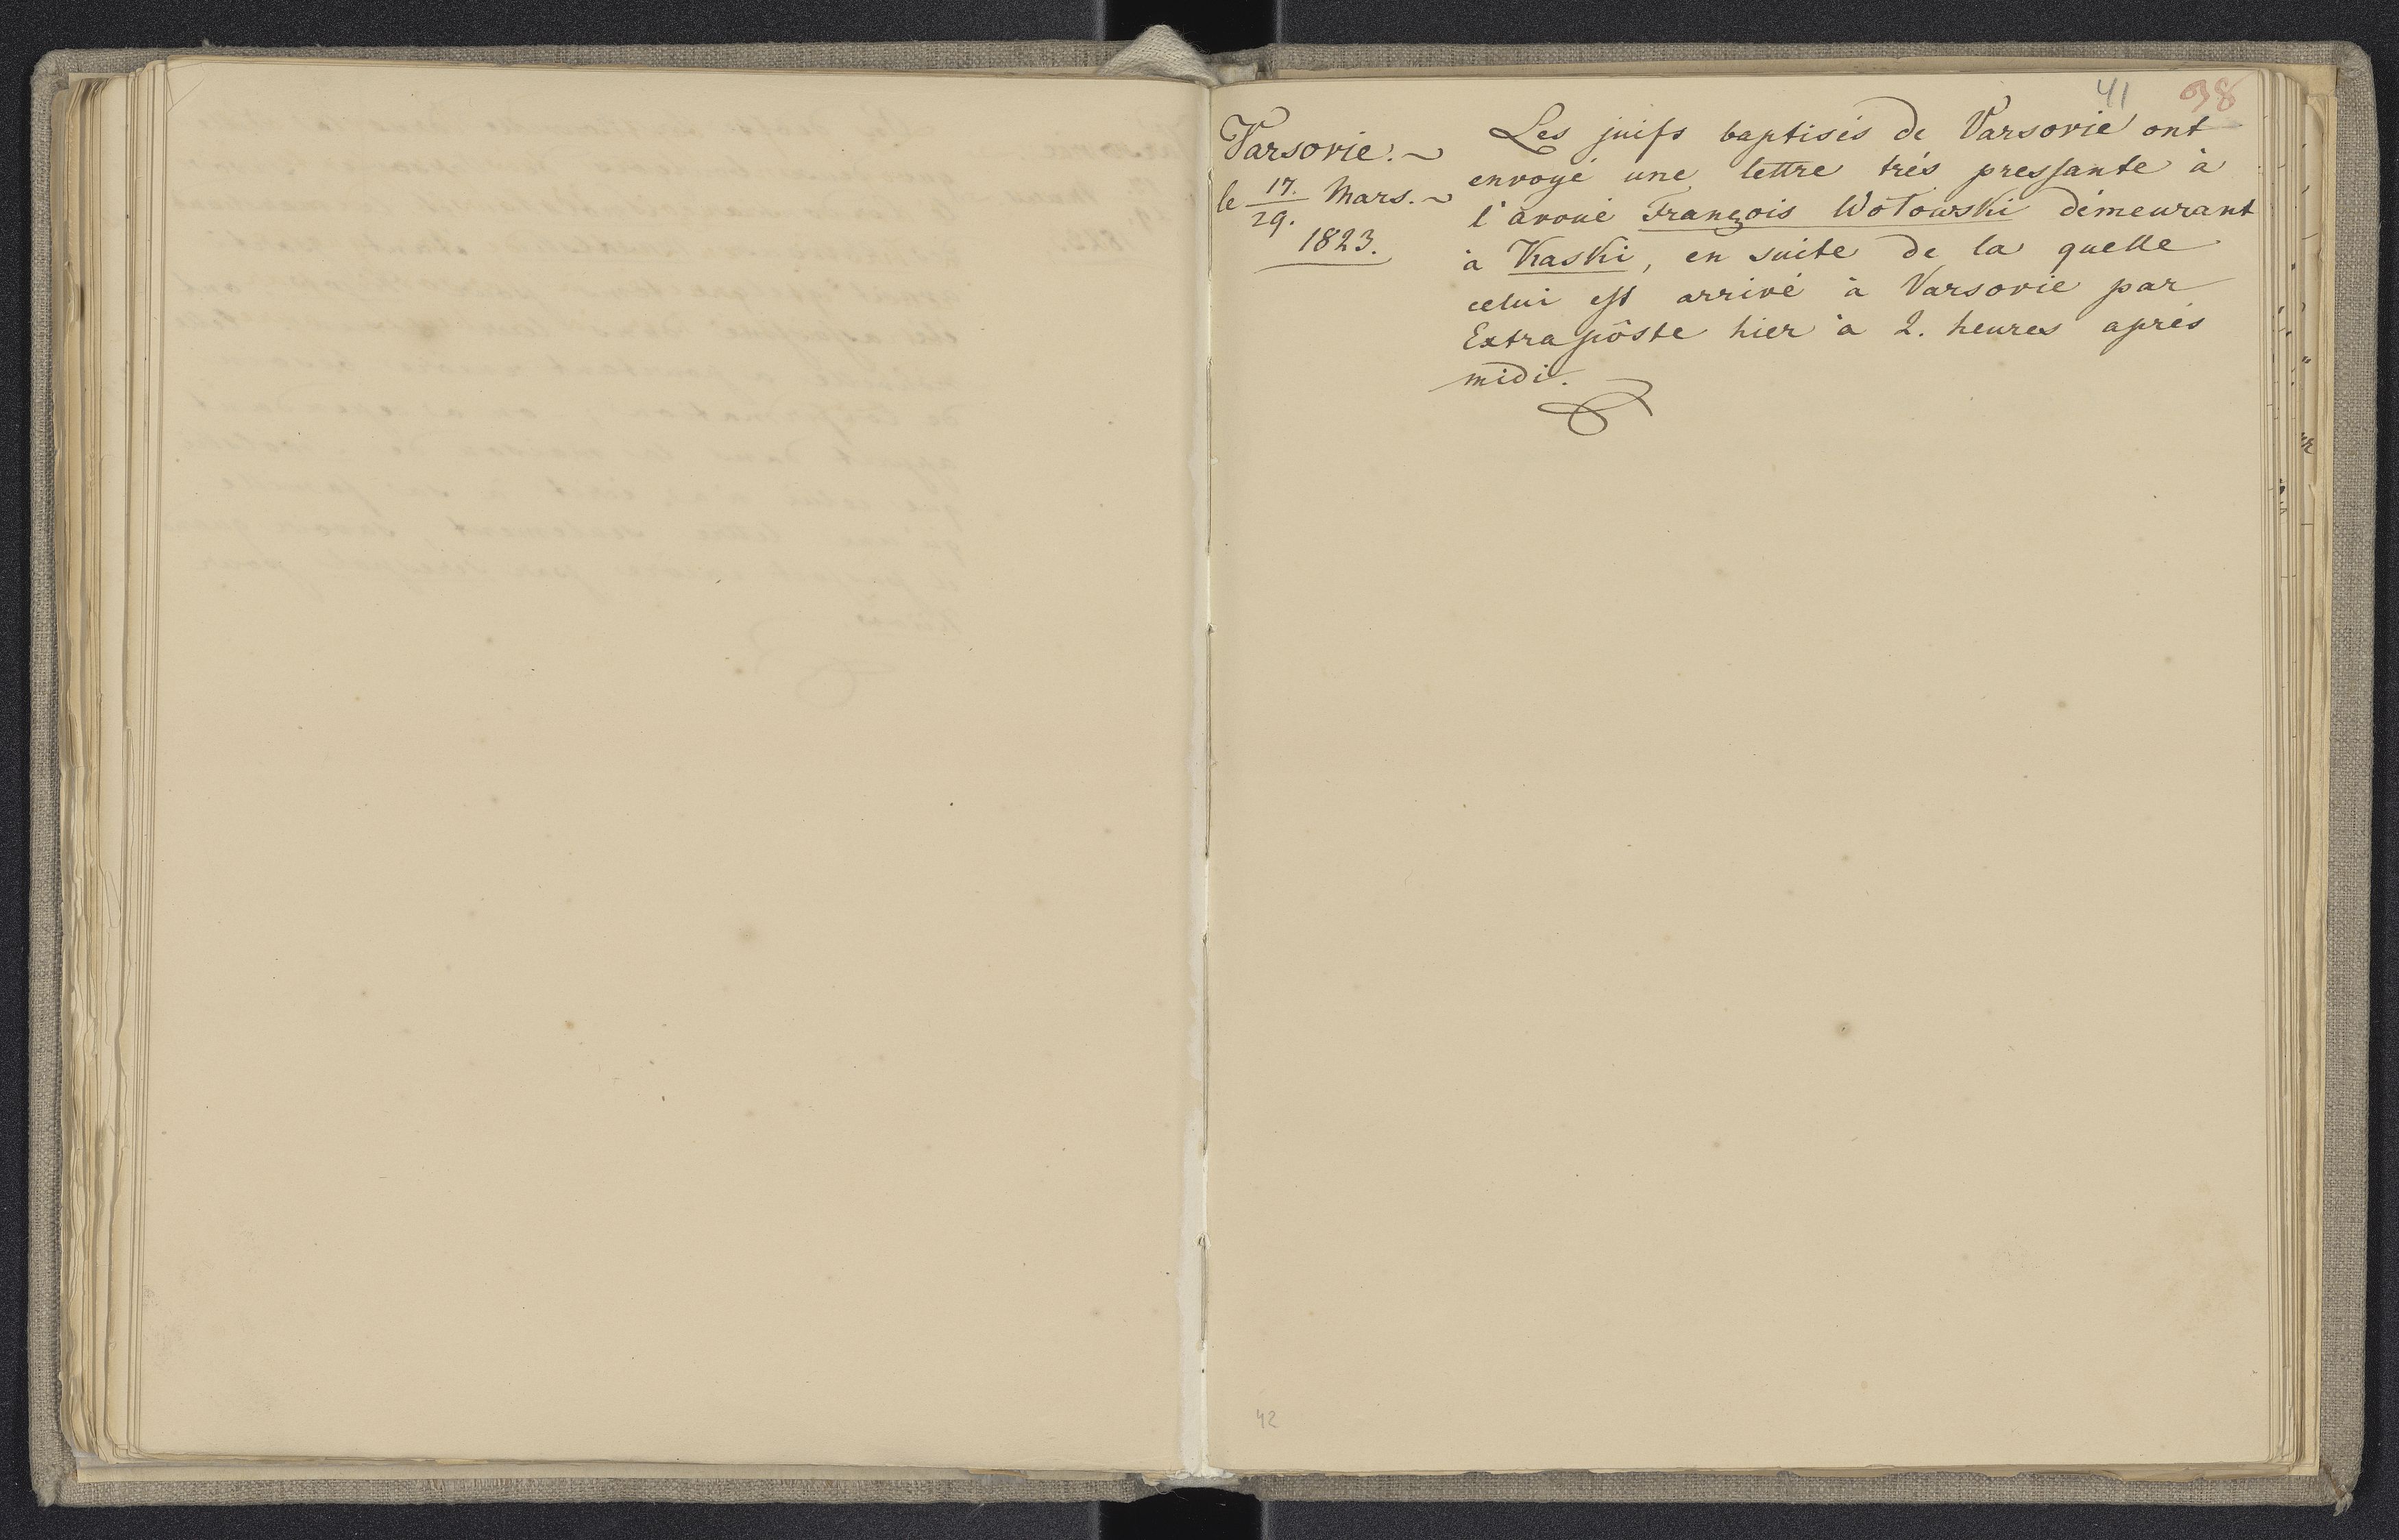 41 98
Varsovie. ~
le 17./29. Mars. ~
1823.
Les juifs baptisés de Varsovie ont
envoyé une lettre trés pressante à
l'avoué François Wołowski démeurant
à Kaski, en suite de la quelle
celui est arrivé à Varsovie par
Extrapôste hier à 2. heures aprés
midi.
42